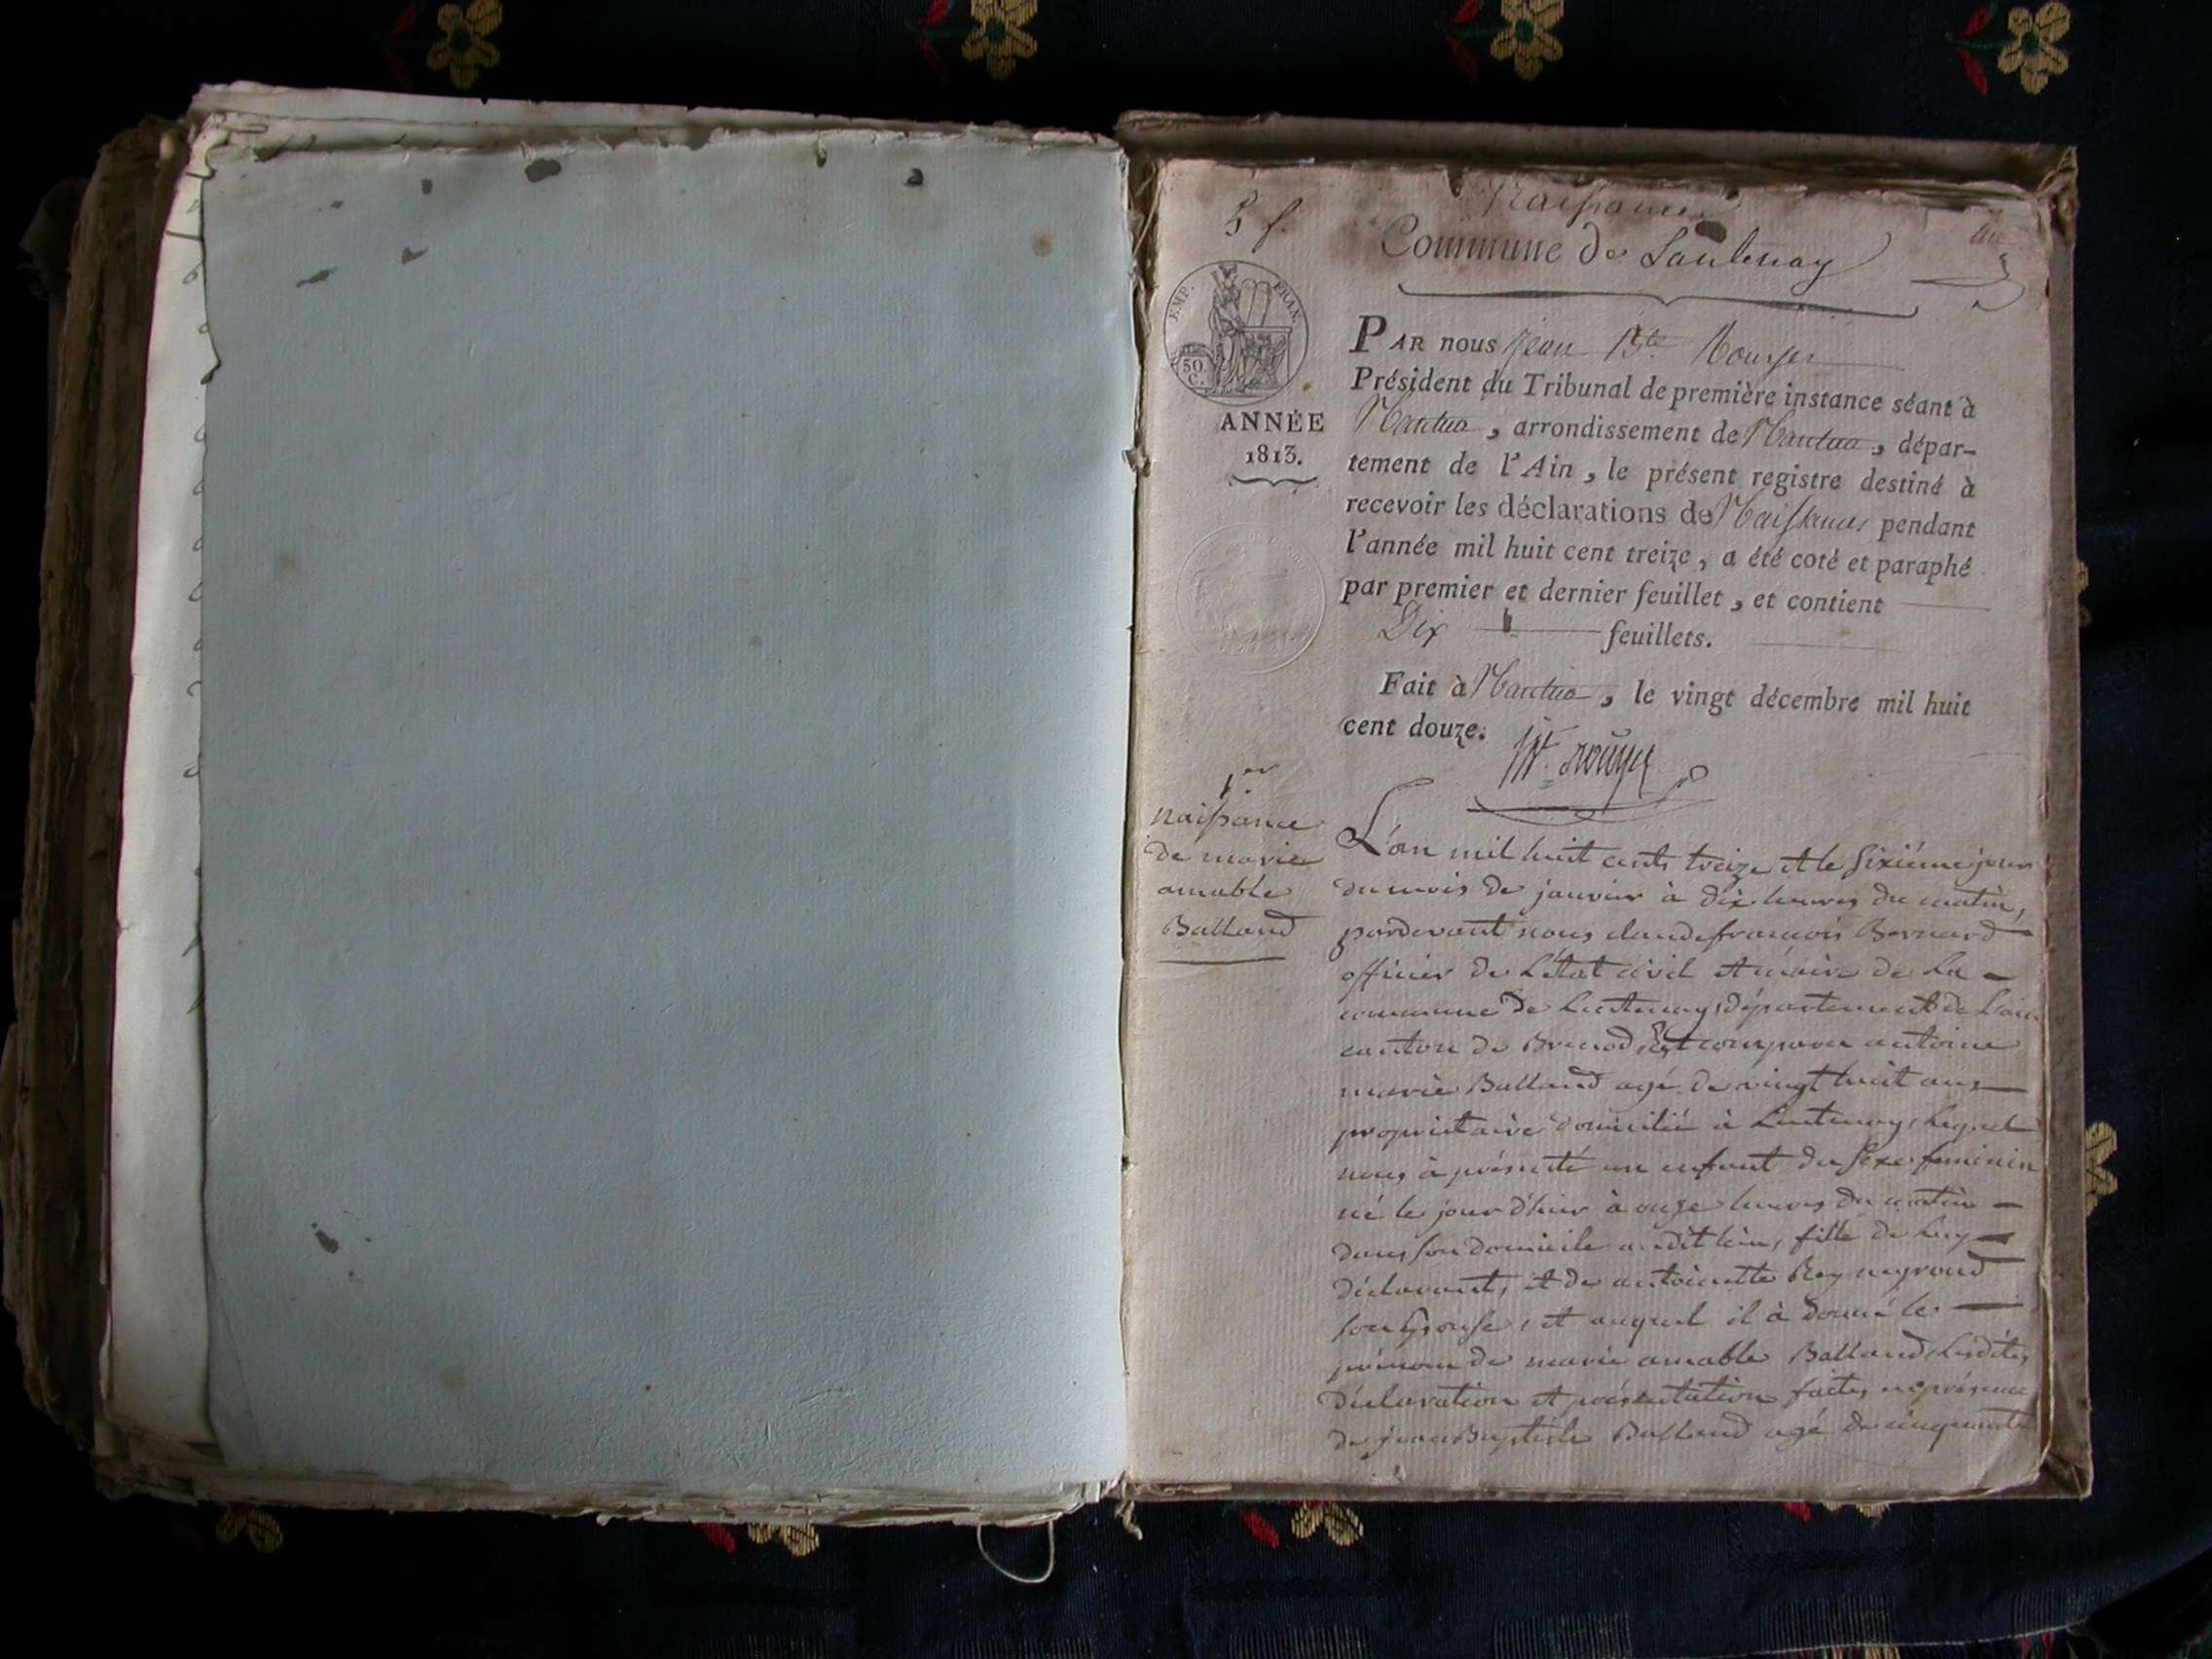 5 f.
Naissances
Commune de Lantenay
un
EMP. FRAN.
50 C.
PAR nous Jean Bte Rouyer
Président du Tribunal de première instance séant à
ANNÉE
1813.
Nantua, arrondissement de Nantua, dépar-
tement de l'Ain, le présent registre destiné à
recevoir les déclarations de Naissances pendant
l'année mil huit cent treize, a été coté et paraphé
par premier et dernier feuillet, et contient
Dix feuillets.
Fait à Nantua, le vingt décembre mil huit
cent douze.
Jn Bte rouyer
1er
naissance
de marie
amable
Balland
L'an mil huit cents treize et le sixiéme jour
du mois de janvier à dix heures du matin,
pardevant nous claude françois Bernard
officier de L'état civil et maire de La
commune de Lantenay, département de L'ain
canton de Brenod, est comparu antoine
marie Balland agé de vingt huit ans
propriétaire domicilié à Lantenay, Lequel
nous à présenté un enfant du sexe feminin
né le jour d'hier à onze heures du matin
dans son domicile audit lieu, fille de Luy
déclarant, et de antoinette Rey neyroud
son Epouse, et auquel il à donné le
prénom de marie amable Balland, Lesdites
déclaration et présentation faites en présence
de jean Baptiste Balland agé de cinquante